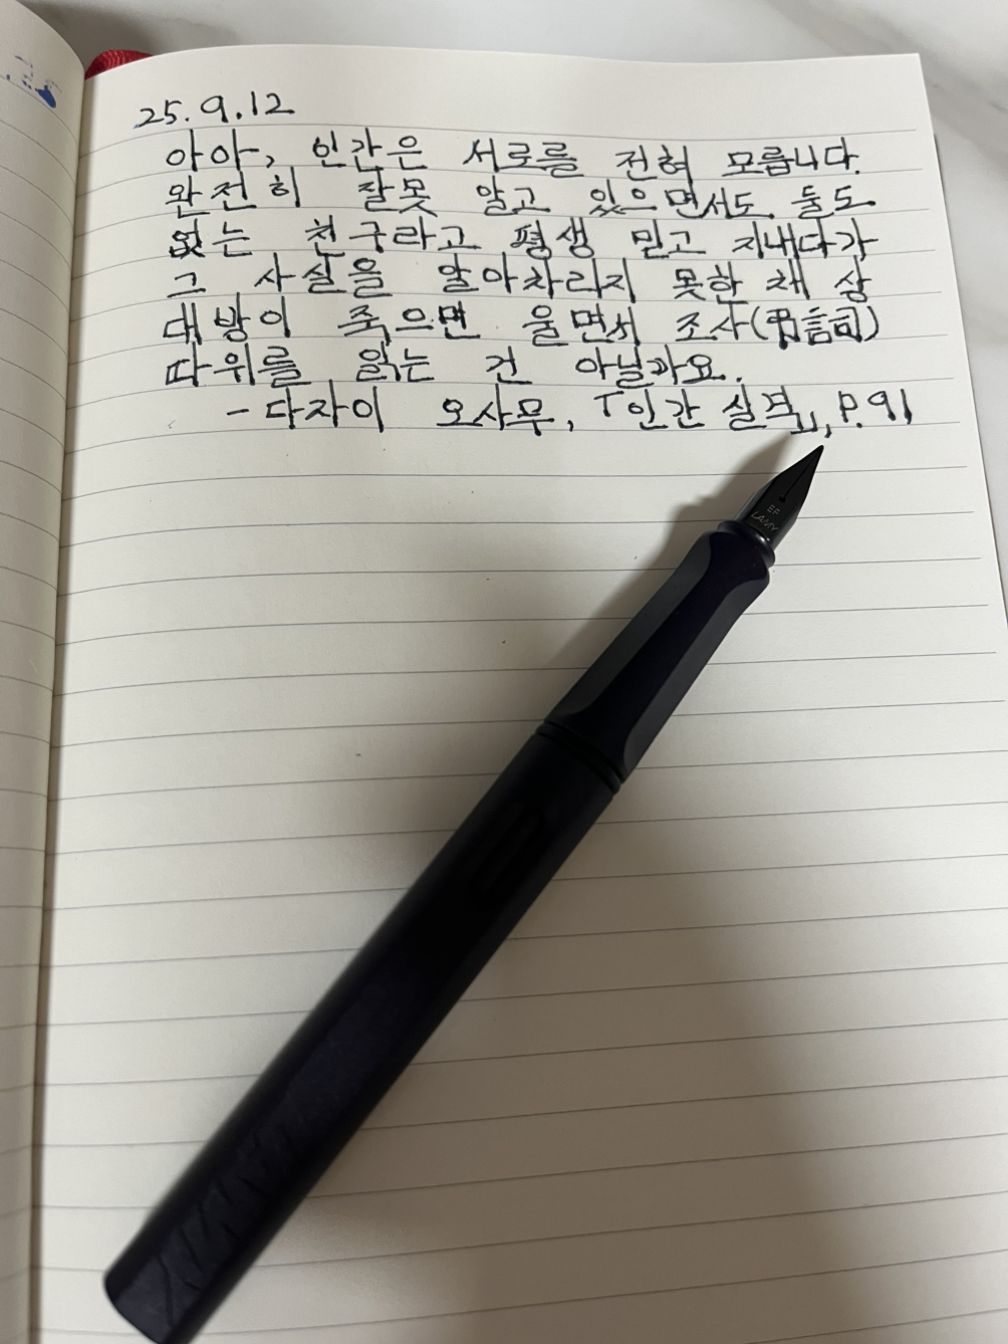 25.9.12
아아, 인간은 서로를 전혀 모릅니다.
완전히 잘못 알고 있으면서도 둘도
없는 친구라고 평생 믿고 지내다가
그 사실을 알아차리지 못한 채 상
대방이 죽으면 울면서 조사(弔詞)
따위를 읽는 건 아닐까요.
- 다자이 오사무, 「인간 실격」, P.91
EF
LAMY
LAMY